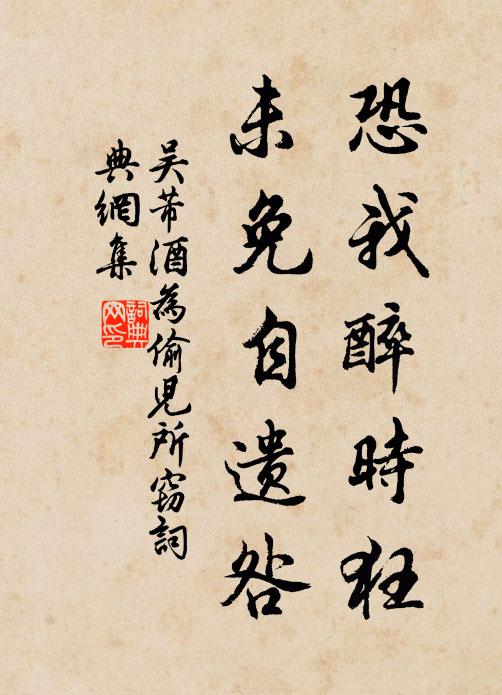 恐我醉時狂
未免自遺咎
吴芾酒為偷兒所竊詞
典網集
詞典网印